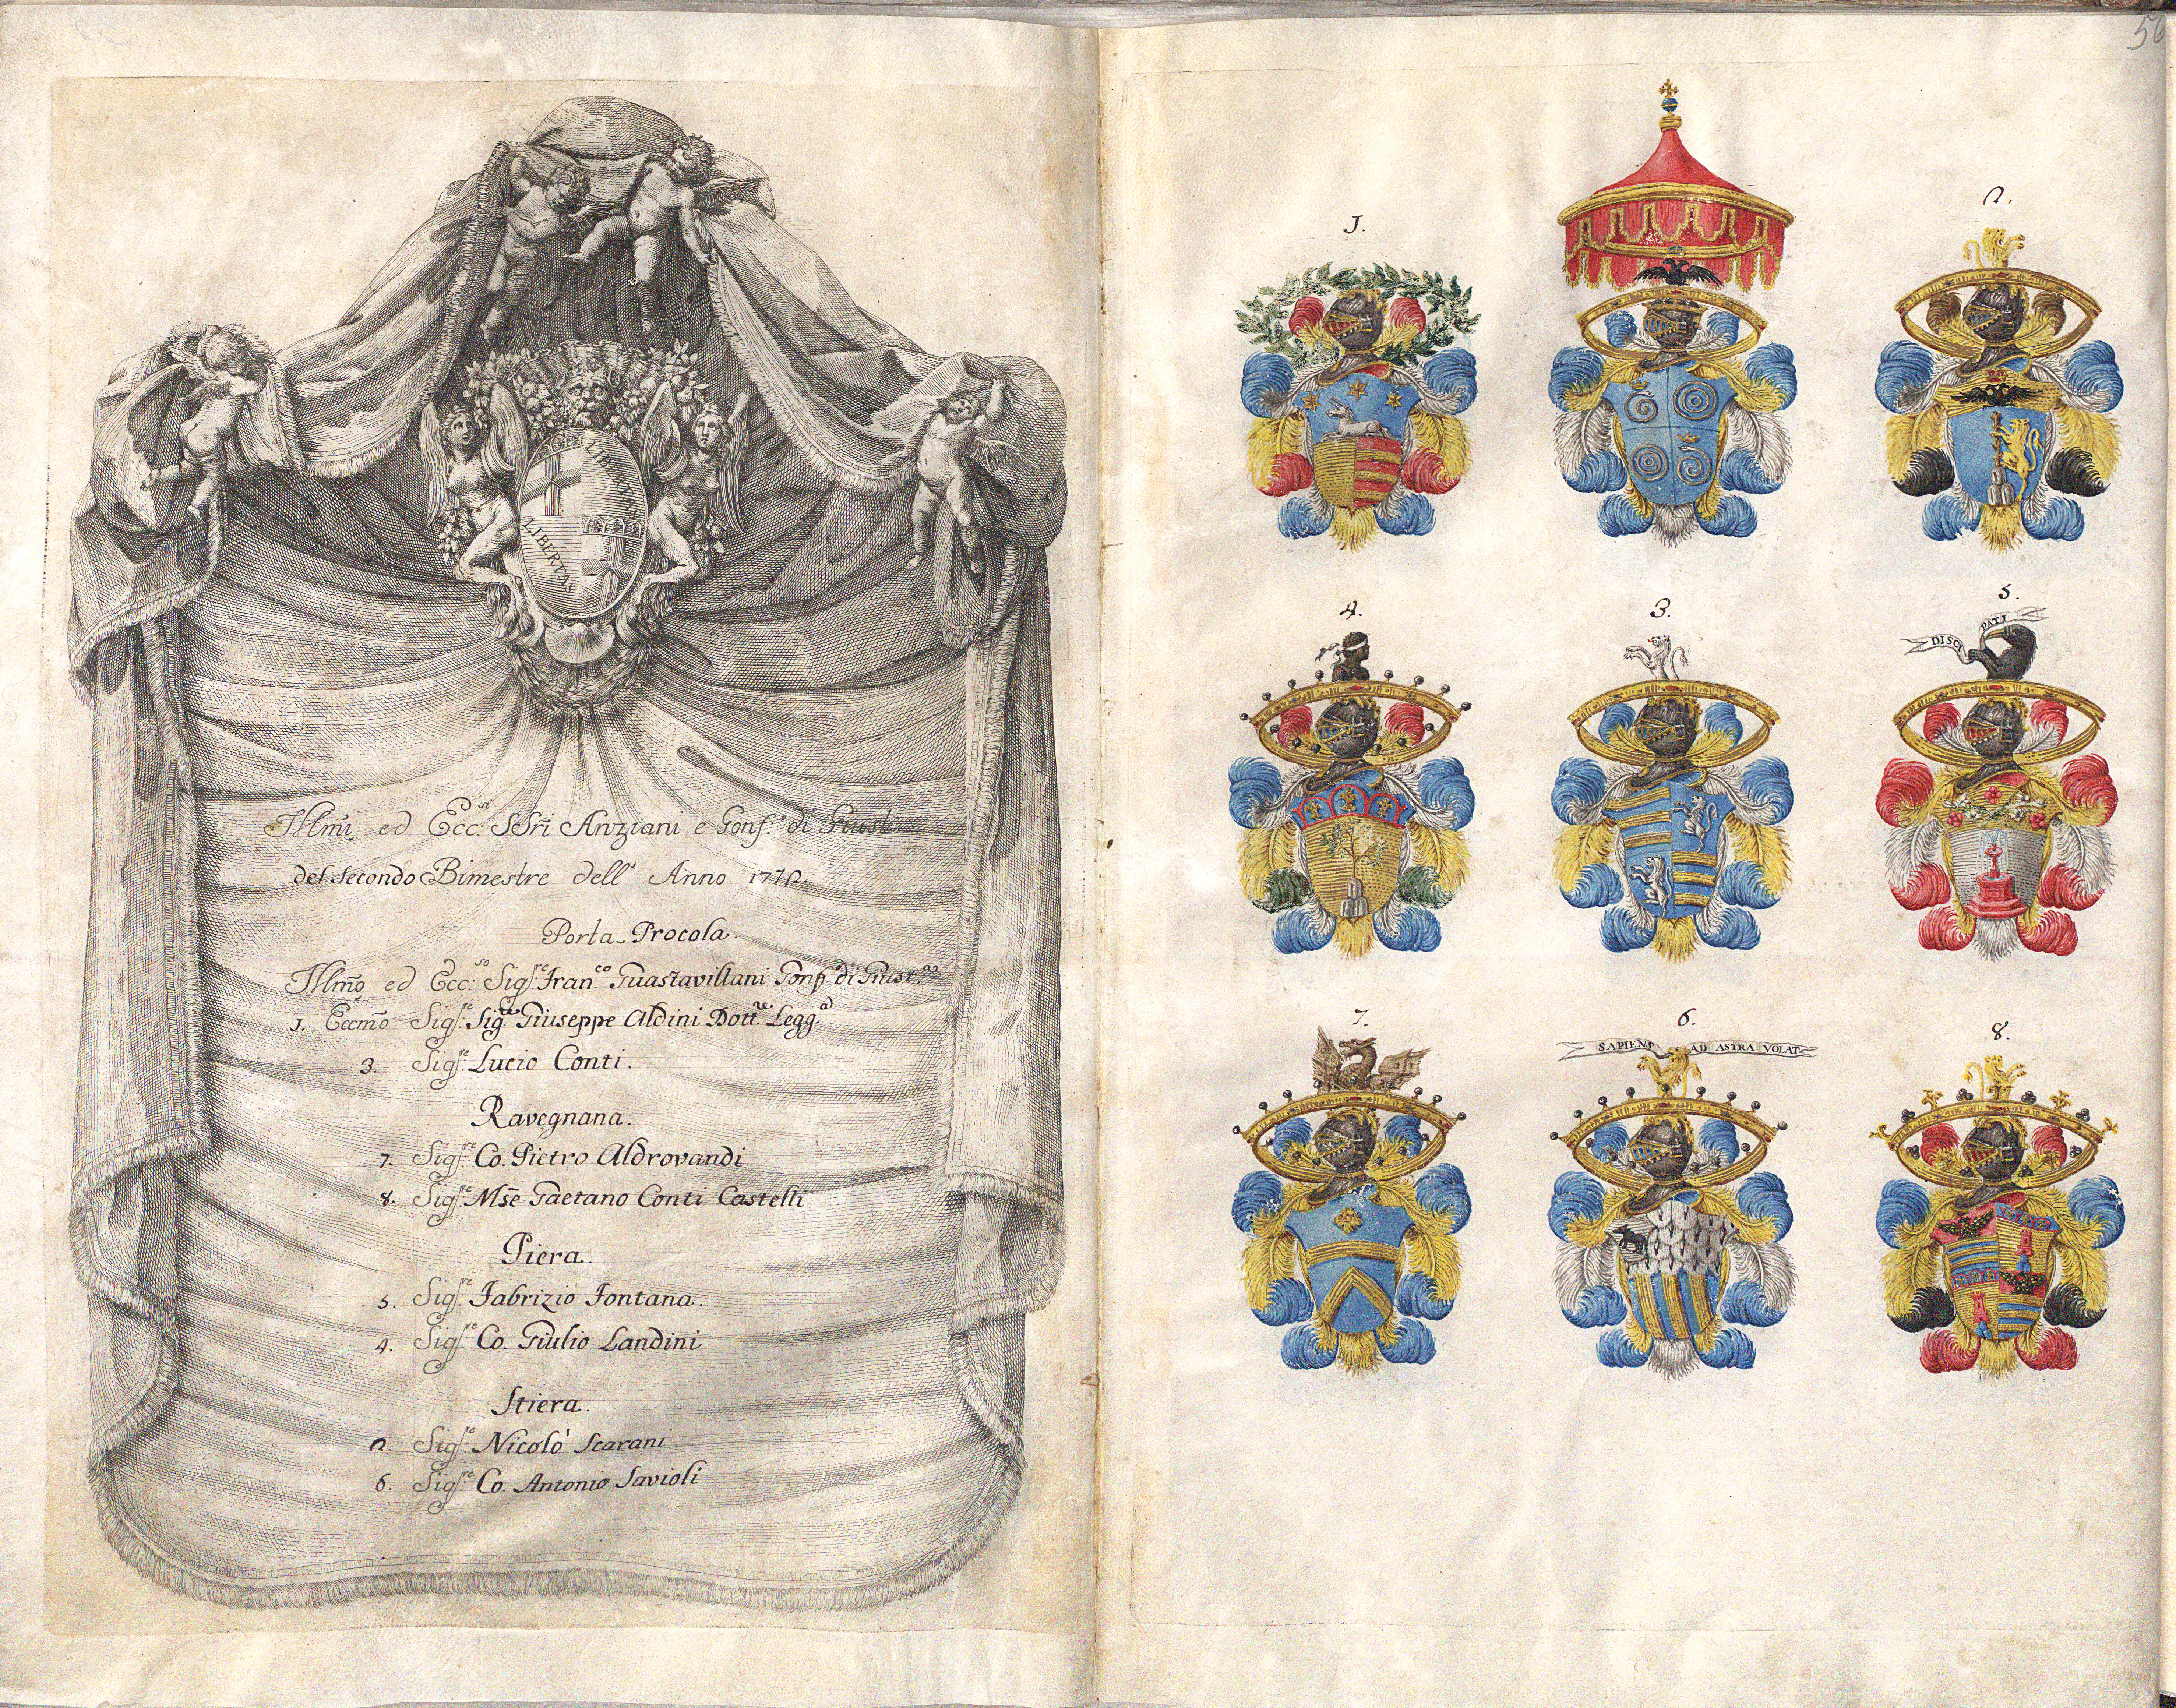 LIBERTAS
LIBERTAS
Illm̃i ed Ecc:si SSri Anziani e Gonf.e di Giust
del secondo Bimestre dell' Anno 1772.
Porta Procola.
Illm̃o ed Ecc:so Sig:re Fran:co Guastavillani Gonf.e di Giust.a
1. Eccm̃o Sig:re Sig.re Giuseppe Aldini Dott.re Legg.a
3. Sig:re Lucio Conti.
Ravegnana.
7. Sig:re Co. Pietro Aldrovandi
8. Sig:re Mse Gaetano Conti Castelli
Piera.
5. Sig:re Fabrizio Fontana.
4. Sig:re Co. Giulio Landini
Stiera.
2. Sig:re Nicolò Scarani
6. Sig:re Co. Antonio Savioli
1.
2.
4.
3.
5.
DISCI PATI
7.
6.
8.
SAPIENS AD ASTRA VOLAT